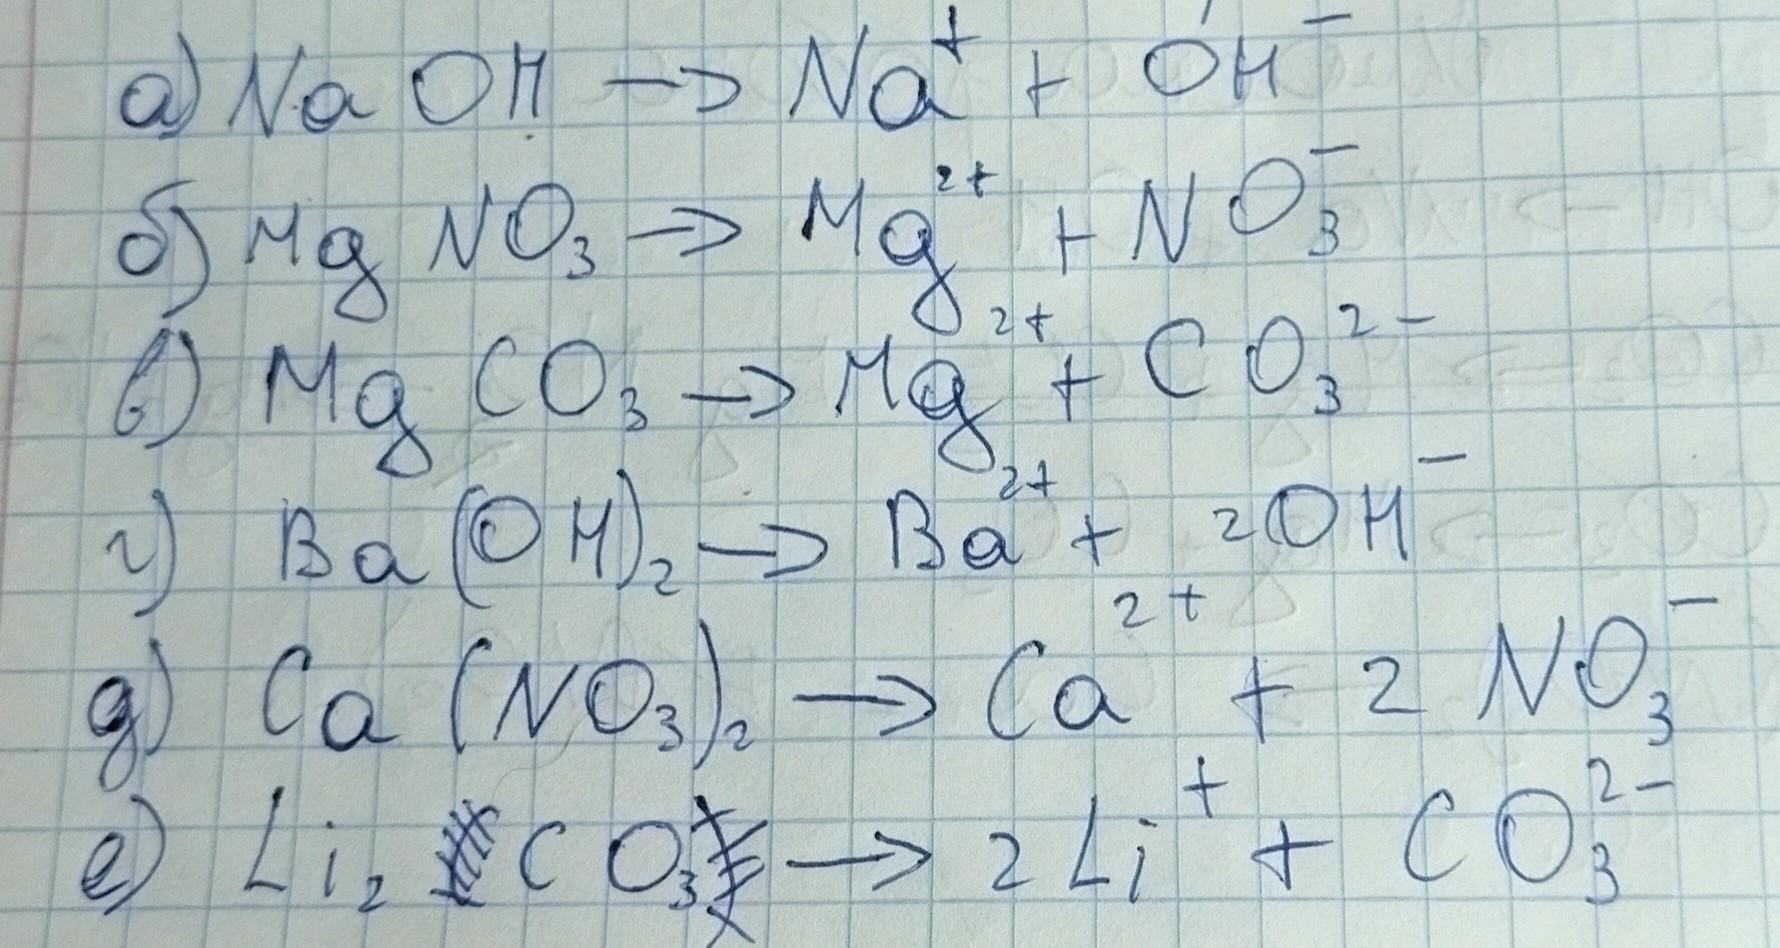 а) NaOH → Na⁺ + OH⁻
б) MgNO₃ → Mg²⁺ + NO₃⁻
в) MgCO₃ → Mg²⁺ + CO₃²⁻
г) Ba(OH)₂ → Ba²⁺ + 2OH⁻
д) Ca(NO₃)₂ → Ca²⁺ + 2NO₃⁻
е) Li₂CO₃ → 2Li⁺ + CO₃²⁻